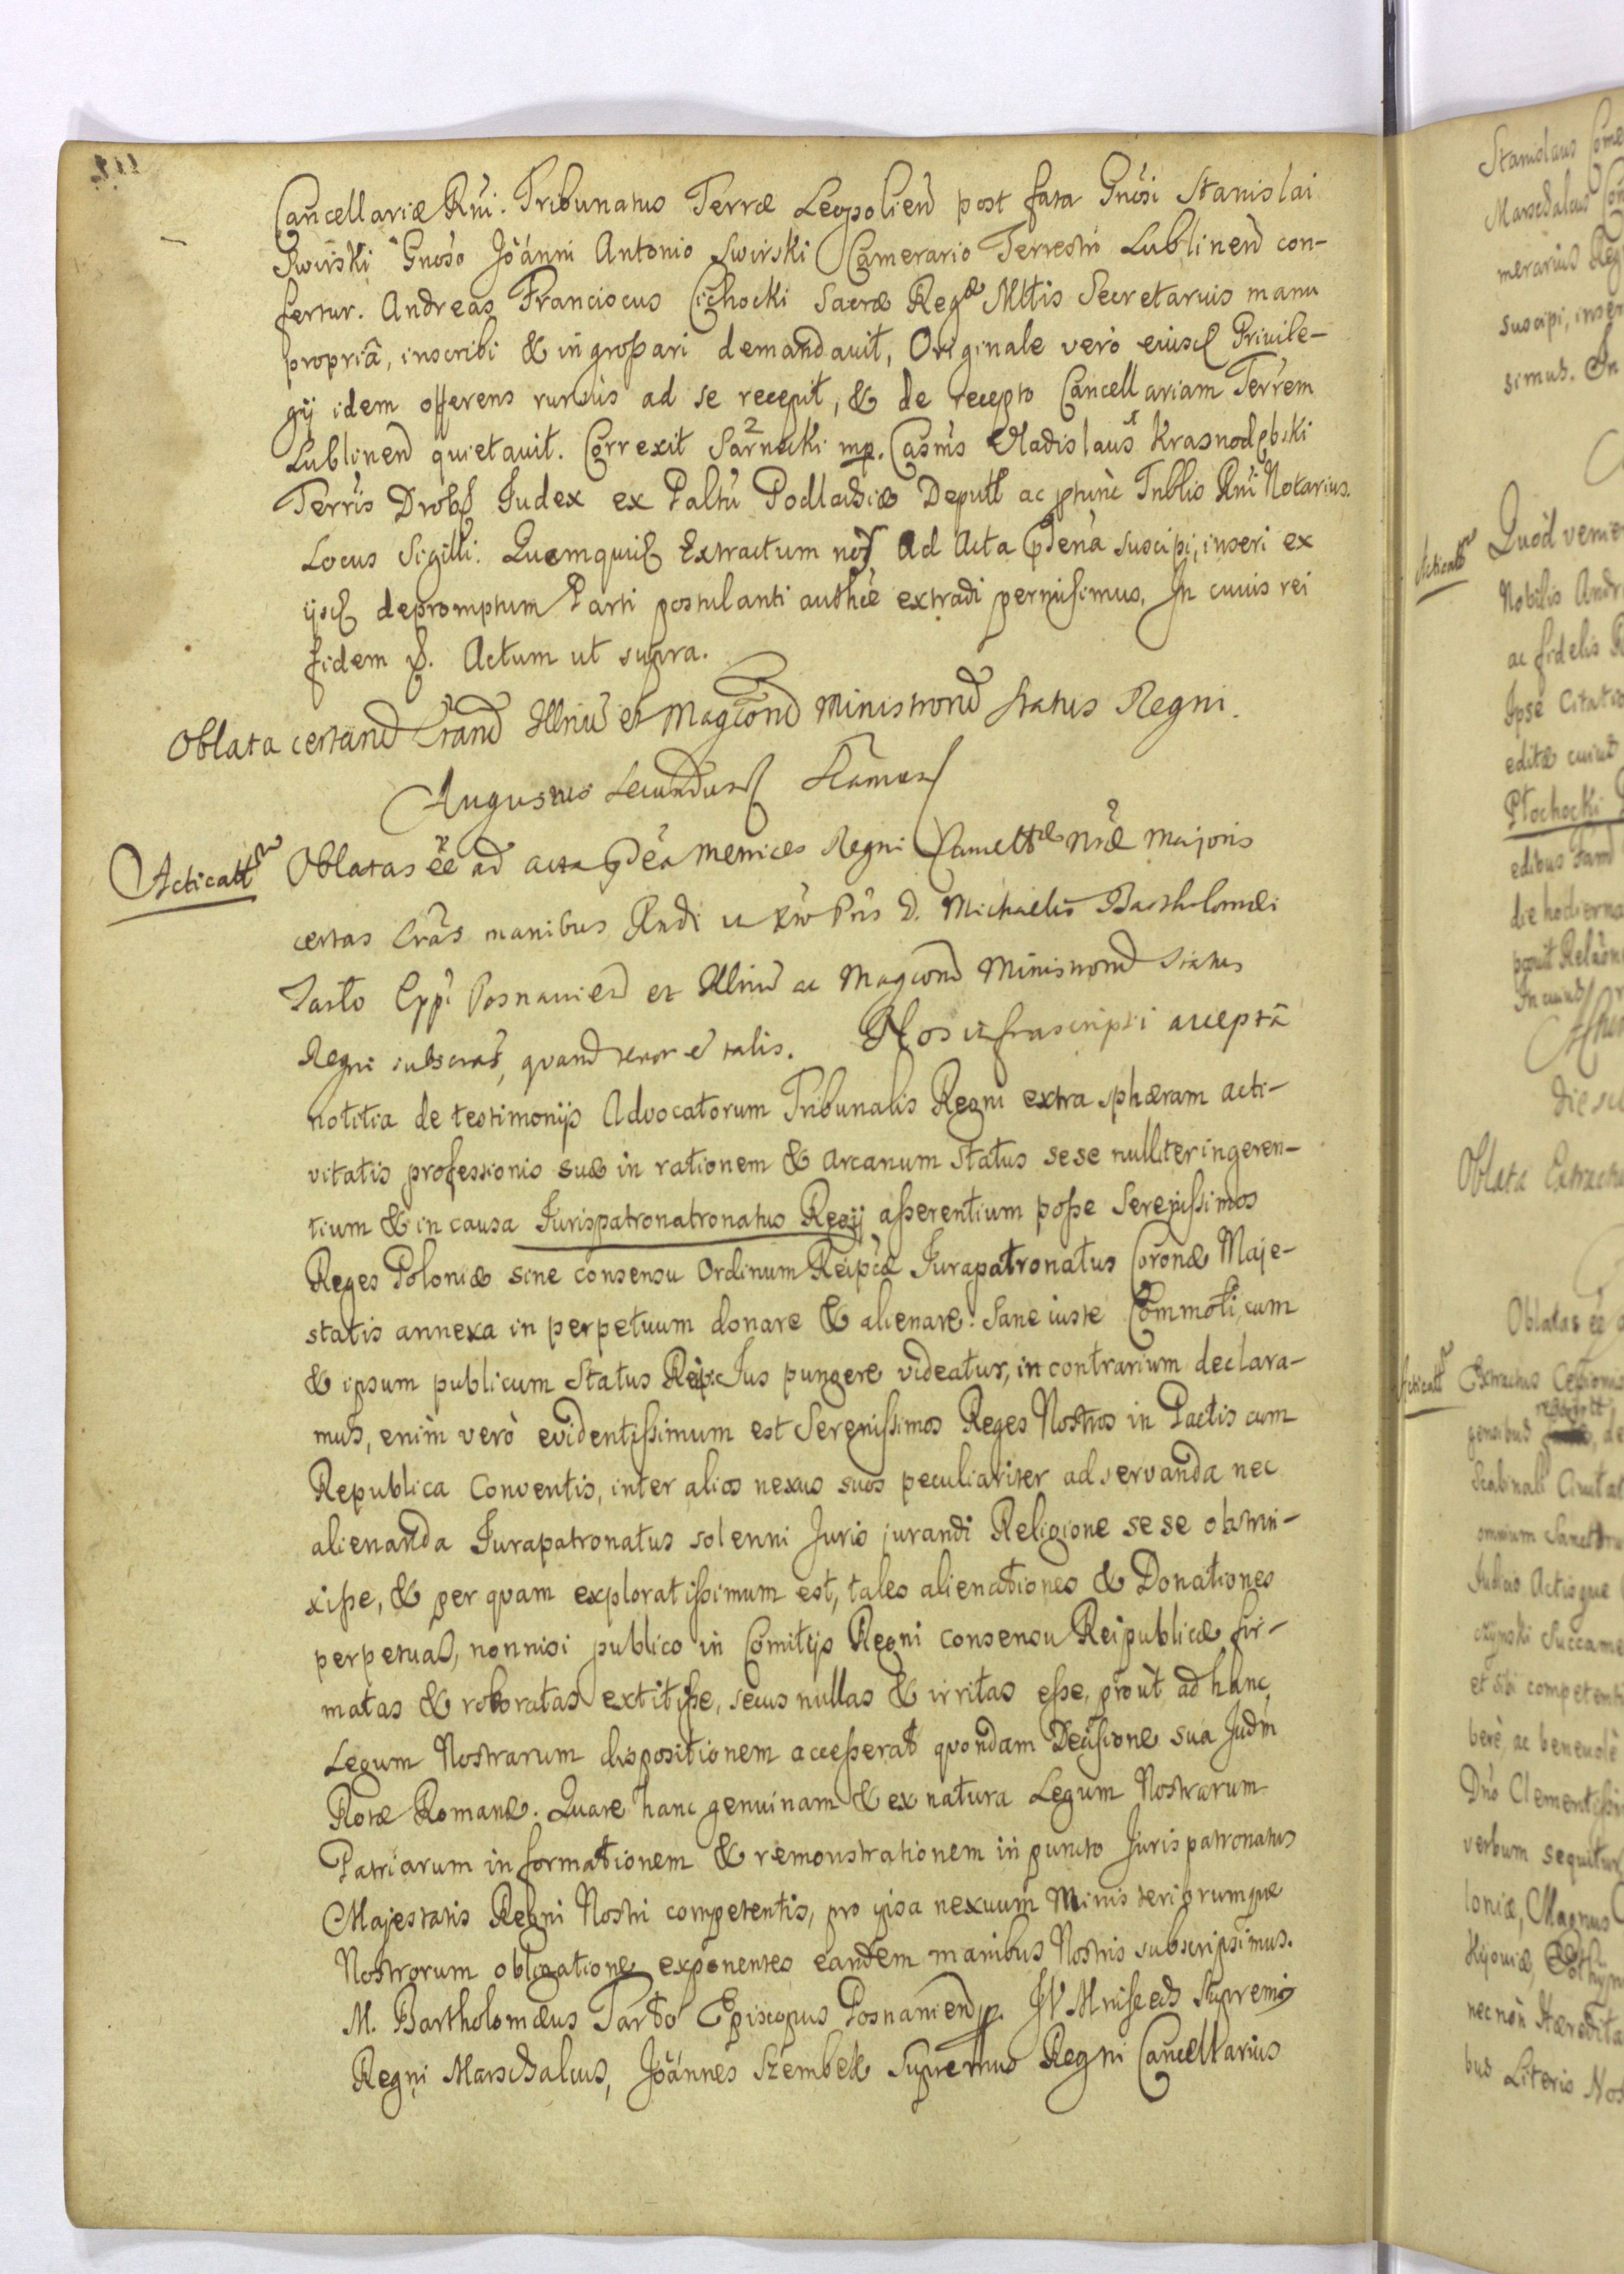 Cancellariæ Rni. Tribunatus Terræ Leopolien post fata Gnosi Stanislai
Swirski Gnoso Joanni Antonio Swirski Camerario Terrestri Lublinen con-
fertur. Andreas Franciscus Cichocki Sacræ Regæ Mttis Secretarius manu
propriâ, inscribi & ingrossari demandavit, Originale verò eiusd Privile-
gij idem offerens rursus ad se recepit, & de recepto Cancellariam Terrem
Lublinen quietavit. Correxit Sarnecki mp. Casms Vladislaus Krasnodębski
Terris Drohs Judex ex Paltu Podlachiæ Deputt ac ptunc Tnblis Rni Notarius.
Locus Sigilli. Quemquid Extractum nos Ad Acta pdena suscipi, inseri ex
ijsd depromptum Parti postulanti authce extradi permisimus, In cuius rei
fidem p. Actum ut supra.
Oblata certand Lrand Illriu et Magcond Ministrond Status Regni.
Augustus Secundus Stamus
Acticatt
Oblatas ee ad acta pdea Metrices Regni Cancellæ Nræ Majoris
certas Lras manibus Rndi in Xto Pris D. Michaelis Bartholomæi
Tarło Eppi Posnanien et Illriu ac Magcond Ministrond Status
Regni subscras, quand tenor e talis. Nos infrascripti acceptâ
notitia de testimonijs Advocatorum Tribunalis Regni extra sphæram acti-
vitatis professionis suæ in rationem & arcanum Status sese nulliter ingeren-
tium & in causa Jurispatronatronatus Regij asserentium posse Serenissimos
Reges Poloniæ sine consensu Ordinum Reipcæ Jurapatronatus Coronæ Maje-
statis annexa in perpetuum donare & alienare. Sane iuste Commoti, cum
& ipsum publicum Status Reipc Jus pungere videatur, in contrarium declara-
mus, enim verò evidentissimum est Serenissimos Reges Nostros in Pactis cum
Republica Conventis, inter alios nexus suos peculiariter ad servanda nec
alienanda Jurapatronatus solenni Juris jurandi Religione sese obstrin-
xisse, & per quam exploratissimum est, tales alienationes & Donationes
perpetuas, nonnisi publico in Comitijs Regni consensu Reipublicæ fir-
matas & roboratas extitisse, secus nullas & irritas esse, proùt ad hanc
Legum Nostrarum dispositionem accesserat quondam Decisione sua Judm
Rotæ Romanæ. Quare hanc genuinam & ex natura Legum Nostrarum
Patriarum informationem & remonstrationem in puncto Jurispatronatus
Majestatis Regni Nostri competentis, pro ipsa nexuum Ministeriorumque
Nostrorum obligatione exponentes eandem manibus Nostris subscripsimus.
M. Bartholomæus Tarło Episcopus Posnanien mp. JW Mniszech Supremus
Regni Marschalcus, Joannes Szembek Supremus Regni Cancellarius